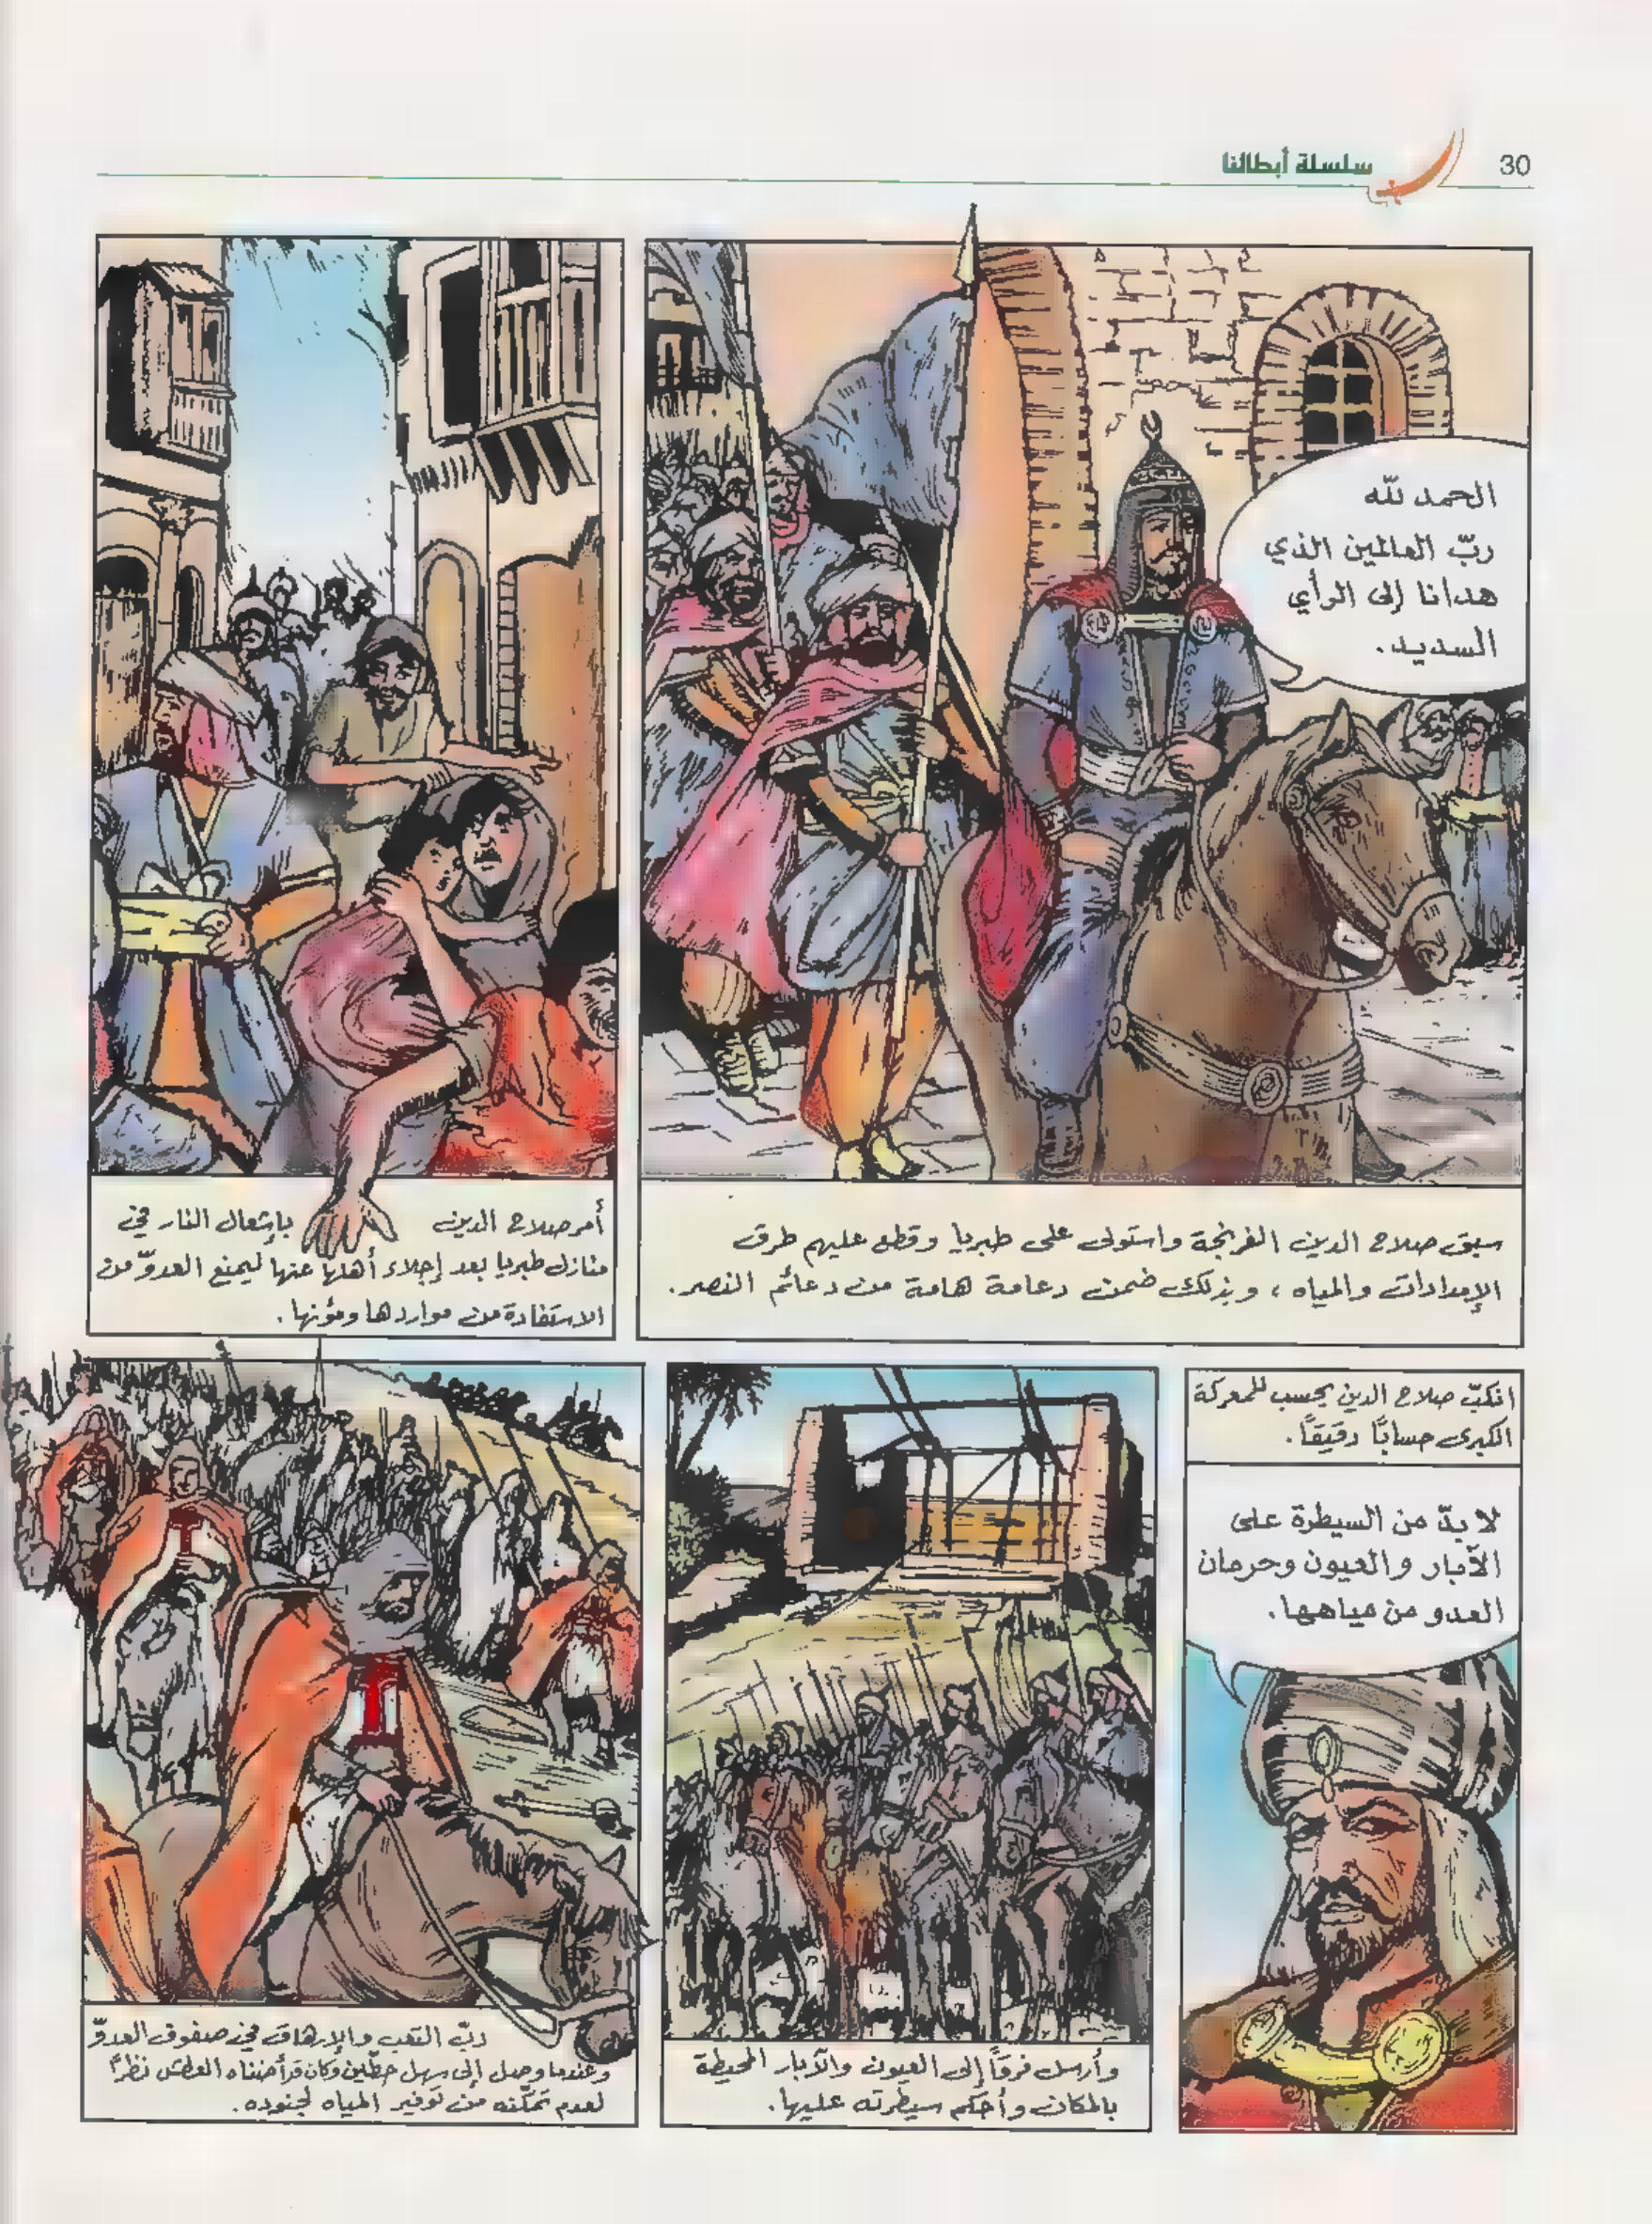 30
سلسلة أبطالنا
الحمد لله
ربّ العالمين الذي
هدانا إلى الرأي
السديد.
سبق صلاح الدين الفرنجة واستولى على طبريا وقطع عليهم طرق
الإمدادات والمياه ، وبذلك ضمن دعامة هامة من دعائم النصر.
أمر صلاح الدين بإشعال النار في
منازل طبريا بعد إجلاء أهلها عنها ليمنع العدوّ من
الاستفادة من مواردها ومؤنها .
انكبّ صلاح الدين يحسب للمعركة
الكبرى حسابًا دقيقًا .
لا بدّ من السيطرة على
الآبار والعيون وحرمان
العدو من مياهها .
وأرسل فرقاً إلى العيون والآبار المحيطة
بالمكان وأحكم سيطرته عليها .
دبّ التعب والإرهاق في صفوف العدوّ
وعندما وصل إلى سهل حطّين وكان قد أضناه العطش نظرًا
لعدم تمكّنه من توفير المياه لجنوده .